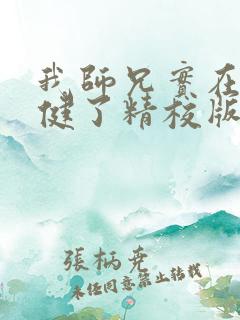 我師兄實在
健了精校版
張柄堯
未经同意禁止转载